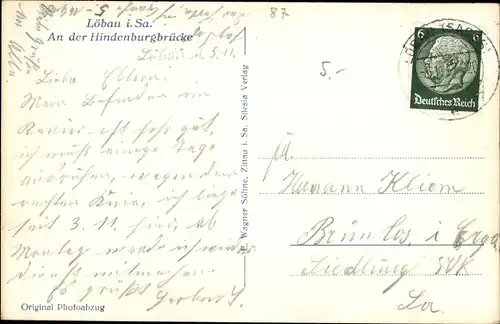 Löbau i. Sa.
An der Hindenburgbrücke
Löbau d. 5. 11.
Liebe Eltern!
Mein Befinden im
Revier ist sehr gut,
ich muß einige Tage
ausruhen, wegen dem
rechten Knie, ich liege
seit 3. 11. hier, ab
Montag werde ich wieder
Dienst mitmachen
Es grüßt Herbert
Original Photoabzug
Wagner Söhne, Zittau i. Sa. Silesia Verlag
87
5.-
6
Deutsches Reich
Hermann Kliem
Brünlos i. Erzg.
Siedlung
Sa.